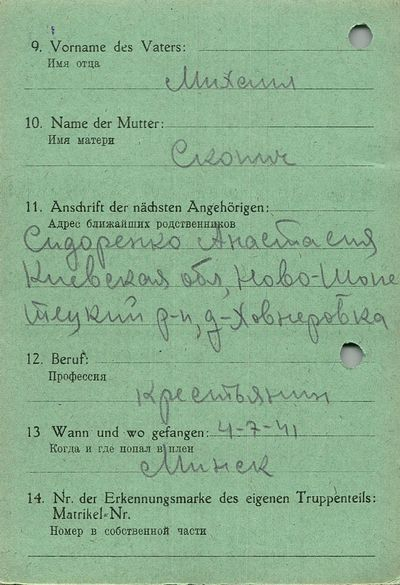 9. Vorname des Vaters:
Имя отца
Михаил
10. Name der Mutter:
Имя матери
Скопич
11. Anschrift der nächsten Angehörigen:
Адрес ближайших родственников
Сидоренко Анастасия
Киевская обл, Ново-Шепе
тецкий р-н, д-Ховнеровка
12. Beruf:
Профессия
крестьянин
13 Wann und wo gefangen: 4-7-41
Когда и где попал в плен
Минск
14. Nr. der Erkennungsmarke des eigenen Truppenteils:
Matrikel-Nr.
Номер в собственной части